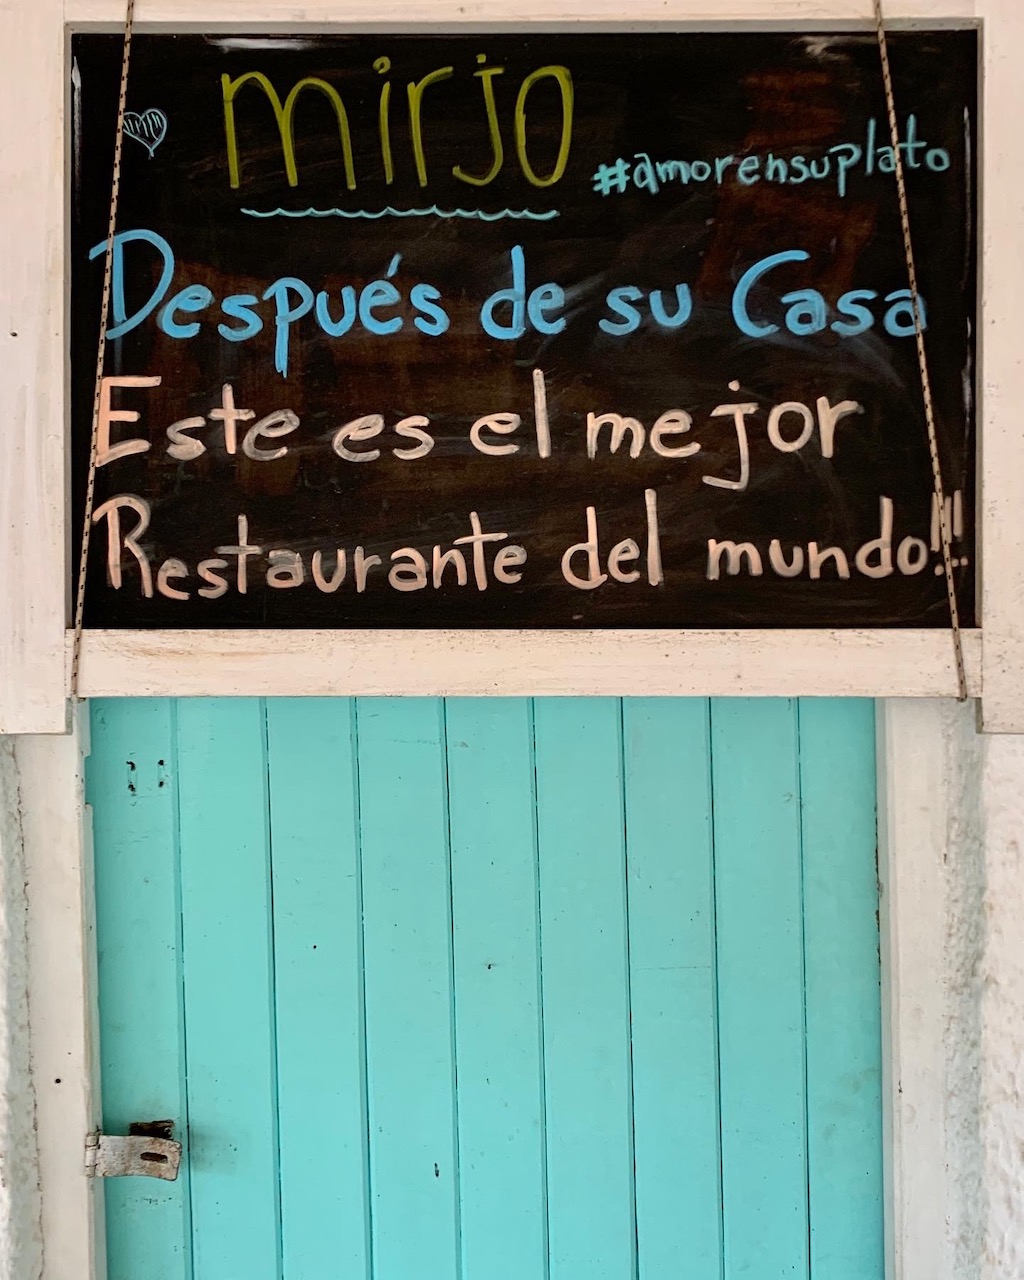 mirjo
#amorensuplato
Después de su Casa
Este es el mejor
Restaurante del mundo!!!